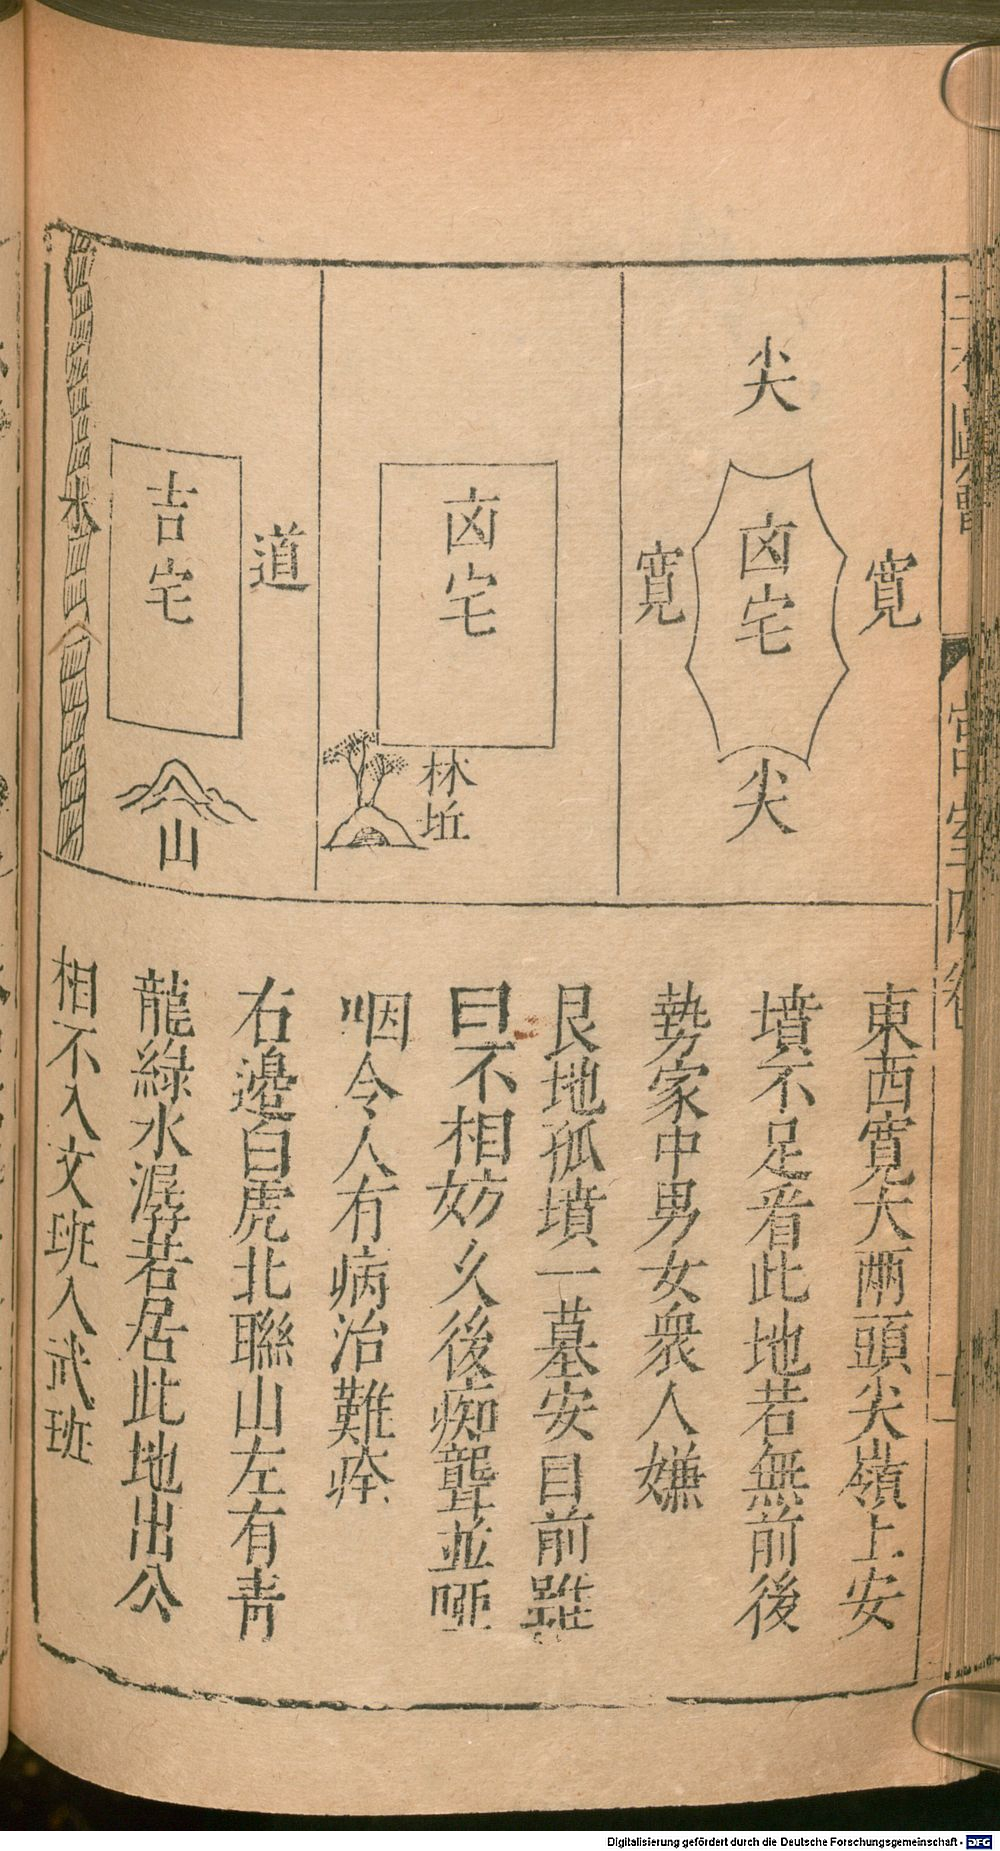 尖
寬
凶宅
寬
尖
凶宅
林坵
道
吉宅
水
山
東西寬大兩頭尖嶺上安
墳不足看此地若無前後
勢家中男女衆人嫌
艮地孤墳一墓安目前雖
曰不相妨久後痴聾並啞
咽令人有病治難痊
右邊白虎北聯山左有青
龍綠水潺若居此地出公
相不入文班入武班
Digitalisierung gefördert durch die Deutsche Forschungsgemeinschaft - DFG